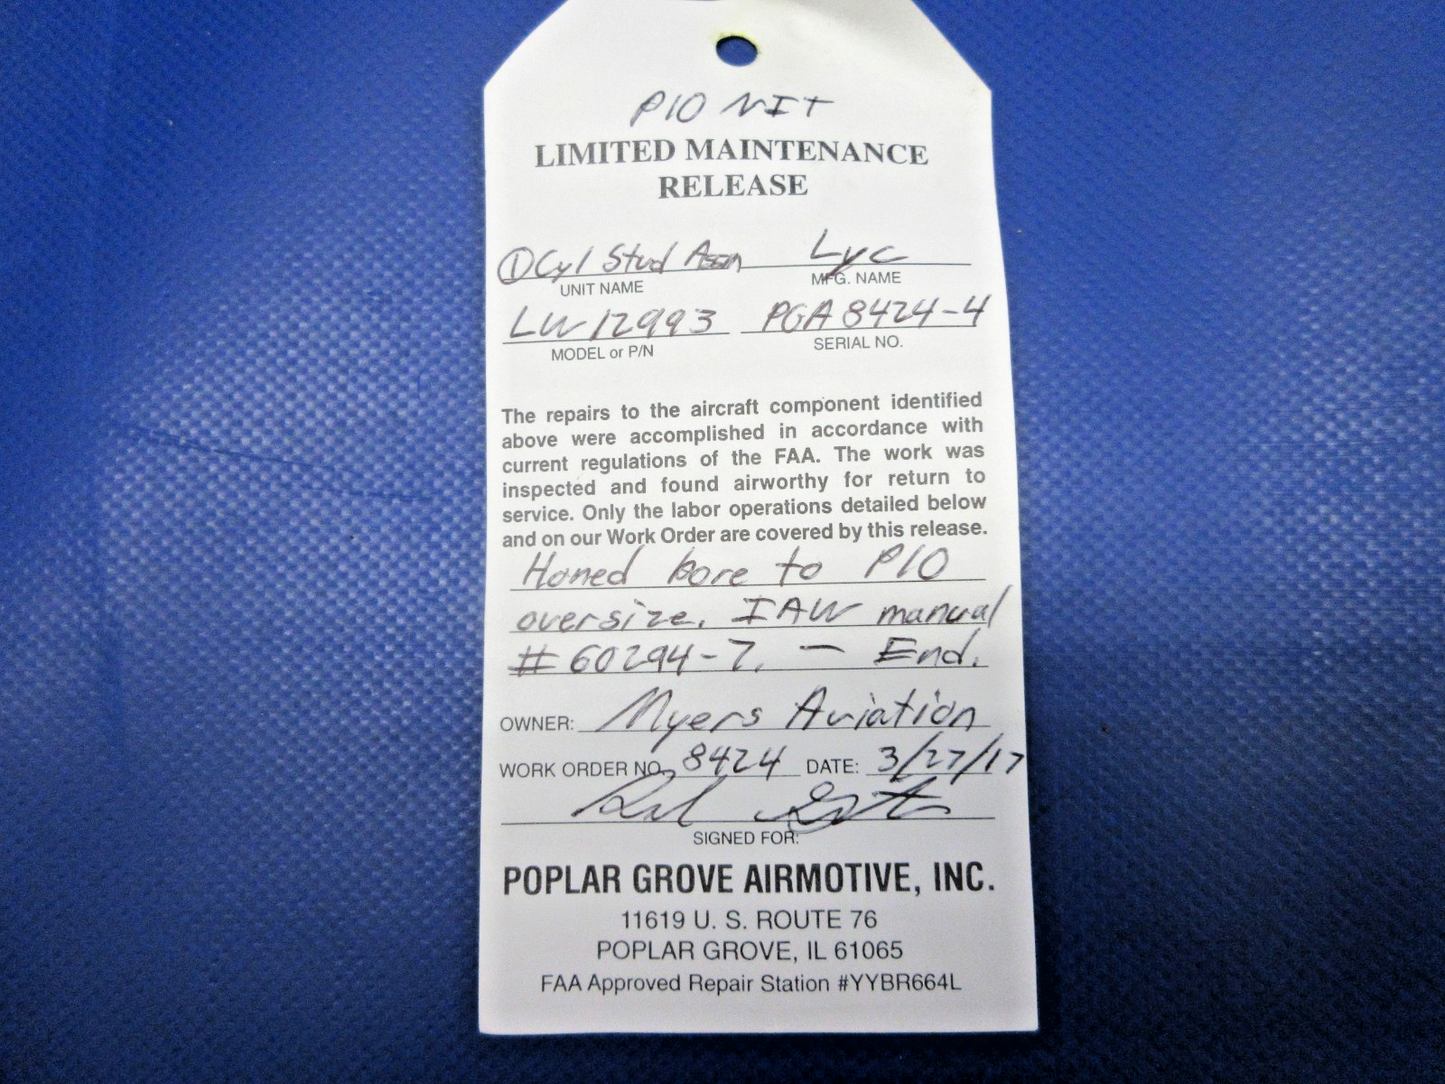 P10 NIT
LIMITED MAINTENANCE
RELEASE
① Cyl Stud Assm Lyc
UNIT NAME MFG. NAME
LW12993 PGA8424-4
MODEL or P/N SERIAL NO.
The repairs to the aircraft component identified
above were accomplished in accordance with
current regulations of the FAA. The work was
inspected and found airworthy for return to
service. Only the labor operations detailed below
and on our Work Order are covered by this release.
Honed bore to P10
oversize. IAW manual
#60294-7. — End.
OWNER: Myers Aviation
WORK ORDER NO. 8424 DATE: 3/27/17
SIGNED FOR:
POPLAR GROVE AIRMOTIVE, INC.
11619 U. S. ROUTE 76
POPLAR GROVE, IL 61065
FAA Approved Repair Station #YYBR664L